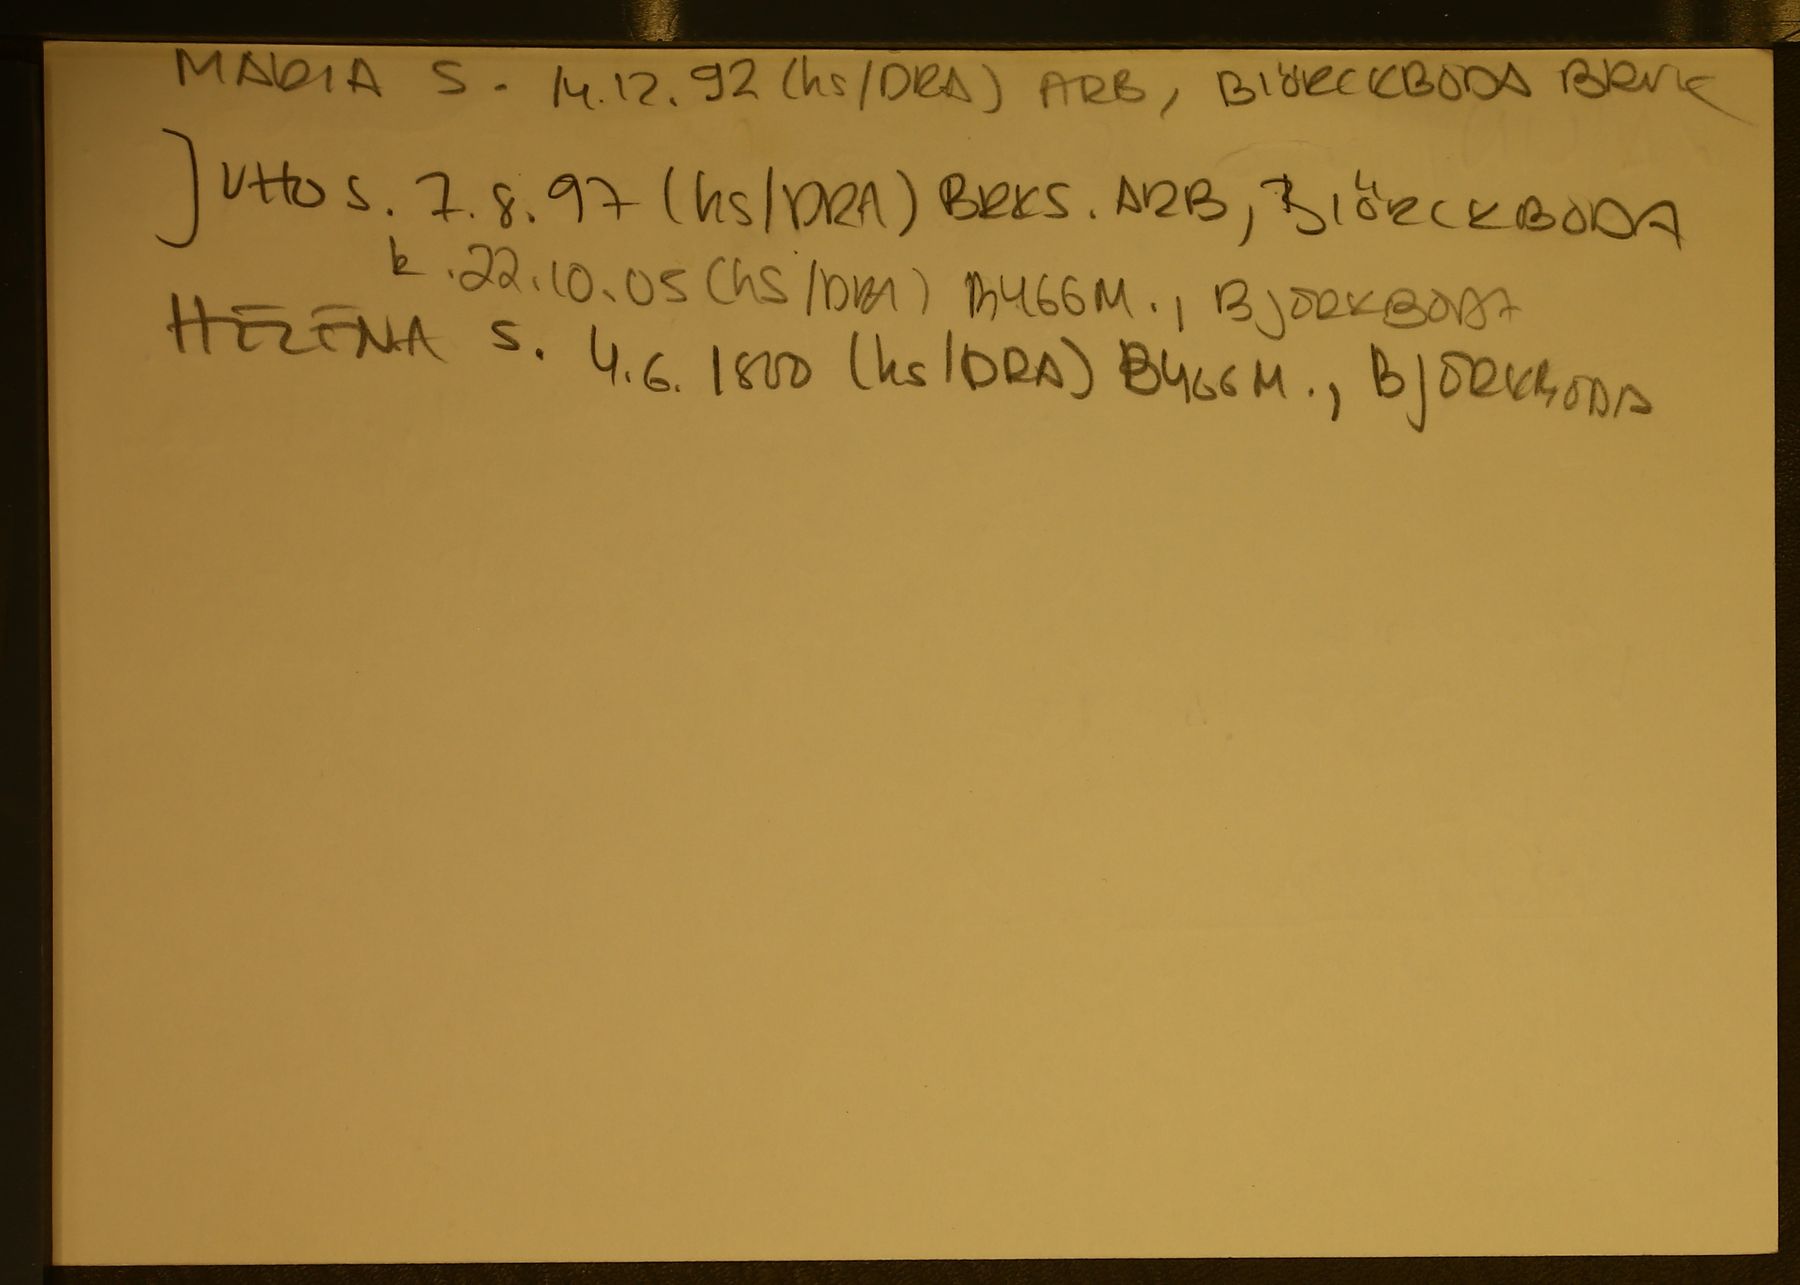 MARIA S. 14.12.92 (hs/DRA) ARB, BIÖRCKBODA BRUK
JUHO S. 7.8.97 (hs/DRA) BRKS. ARB, BIÖRCKBODA
k.22.10.05 (hS/DRA) BYGGM., BJÖRKBODA
HELENA S. 4.6.1800 (hs/DRA) BYGGM., BJÖRKBODA